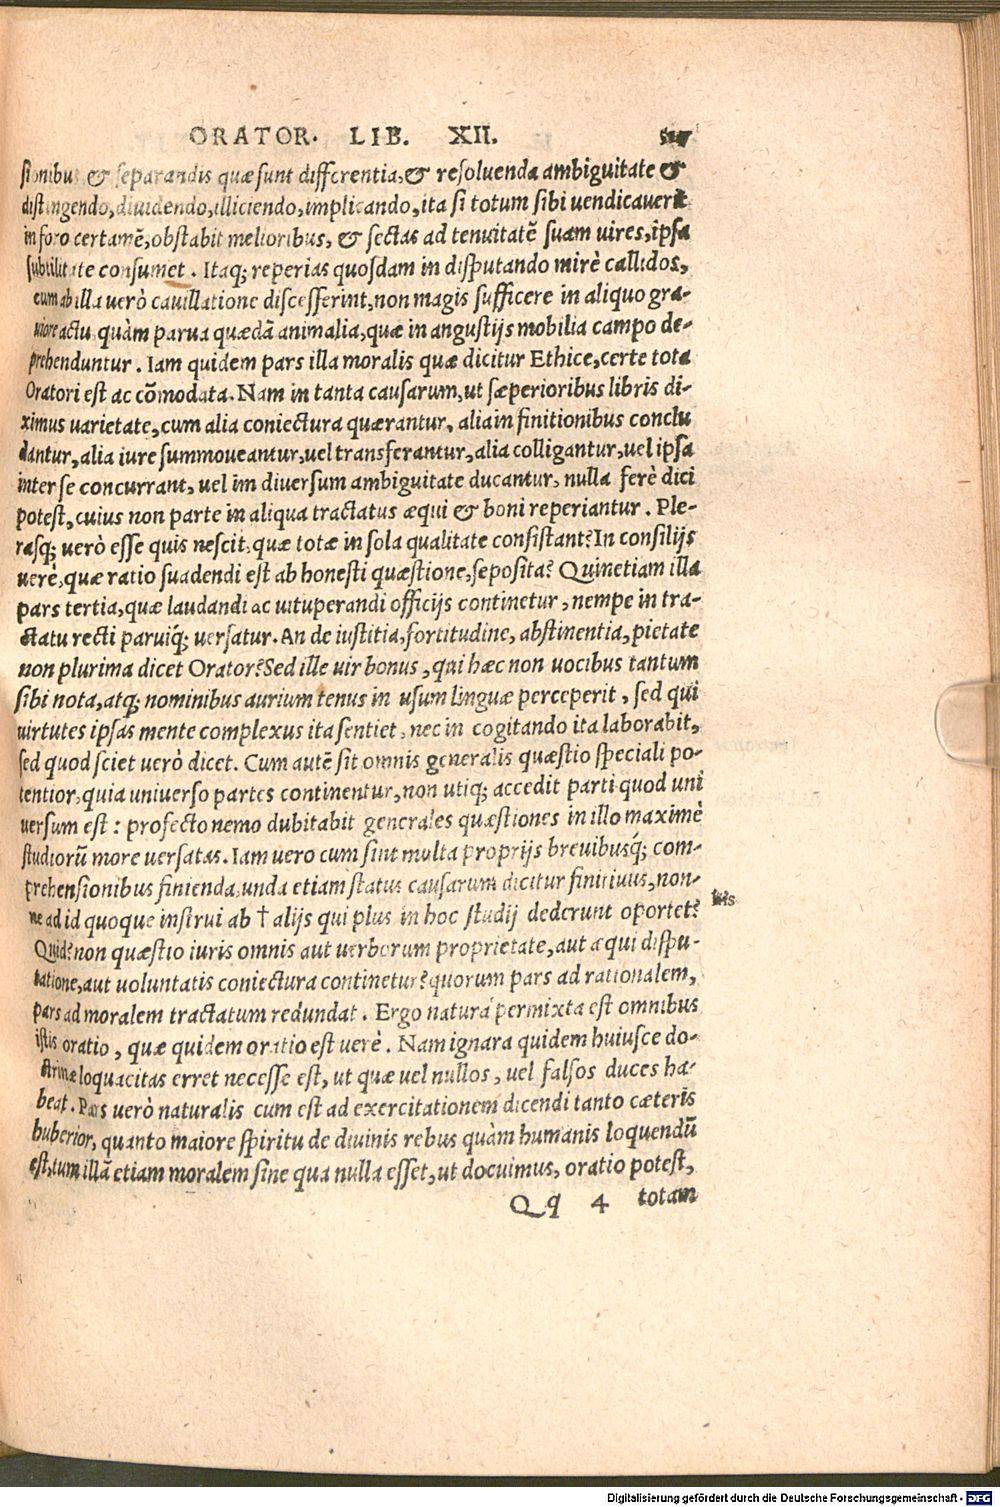 ORATOR. LIB. XII.
sionibus & separandis quæ sunt differentia, & resoluenda ambiguitate &
distingendo, diuidendo, illiciendo, implicando, ita si totum sibi uendicauerit
in foro certamẽ, obstabit melioribus, & sectas ad tenuitatẽ suam uires, ipsa
subtilitate consumet. Itaq; reperias quosdam in disputando mirè callidos,
cum ab illa uerò cauillatione discesserint, non magis sufficere in aliquo gra-
uiore actu, quàm parua quædã animalia, quæ in angustijs mobilia campo de-
prehenduntur. Iam quidem pars illa moralis quæ dicitur Ethice, certe tota
Oratori est ac cõmodata. Nam in tanta causarum, ut sæperioribus libris di-
ximus uarietate, cum alia coniectura quærantur, alia in finitionibus conclu
dantur, alia iure summoueantur, uel transferantur, alia colligantur, uel ipsa
inter se concurrant, uel im diuersum ambiguitate ducantur, nulla ferè dici
potest, cuius non parte in aliqua tractatus æqui & boni reperiantur. Ple-
rasq; uerò esse quis nescit, quæ totæ in sola qualitate consistant? In consilijs
uerè, quæ ratio suadendi est ab honesti quæstione, seposita? Quinetiam illa
pars tertia, quæ laudandi ac uituperandi officijs continetur, nempe in tra-
ctatu recti paruiq́; uersatur. An de iustitia, fortitudine, abstinentia, pietate
non plurima dicet Orator? Sed ille uir bonus, qui hæc non uocibus tantum
sibi nota, atq; nominibus aurium tenus in usum linguæ perceperit, sed qui
uirtutes ipsas mente complexus ita sentiet, nec in cogitando ita laborabit,
sed quod sciet uerò dicet. Cum autẽ sit omnis generalis quæstio speciali po-
tentior, quia uniuerso partes continentur, non utiq; accedit parti quod uni
uersum est: profecto nemo dubitabit generales quæstiones in illo maximè
studiorũ more uersatas. Iam uero cum sint multa proprijs breuibusq́; com-
prehensionibus finienda, unda etiam status causarum dicitur finitiuus, non-
ne ad id quoque instrui ab † alijs qui plus in hoc studij dederunt oportet?
his
Quid? non quæstio iuris omnis aut uerborum proprietate, aut æqui dispu-
tatione, aut uoluntatis coniectura continetur? quorum pars ad rationalem,
pars ad moralem tractatum redundat. Ergo natura permixta est omnibus
istis oratio, quæ quidem oratio est uerè. Nam ignara quidem huiusce do-
ctrinæ loquacitas erret necesse est, ut quæ uel nullos, uel falsos duces ha-
beat. Pars uerò naturalis cum est ad exercitationem dicendi tanto cæteris
huberior, quanto maiore spiritu de diuinis rebus quàm humanis loquendũ
est, tum illã etiam moralem sine qua nulla esset, ut docuimus, oratio potest,
Qq 4 totam
Digitalisierung gefördert durch die Deutsche Forschungsgemeinschaft - DFG